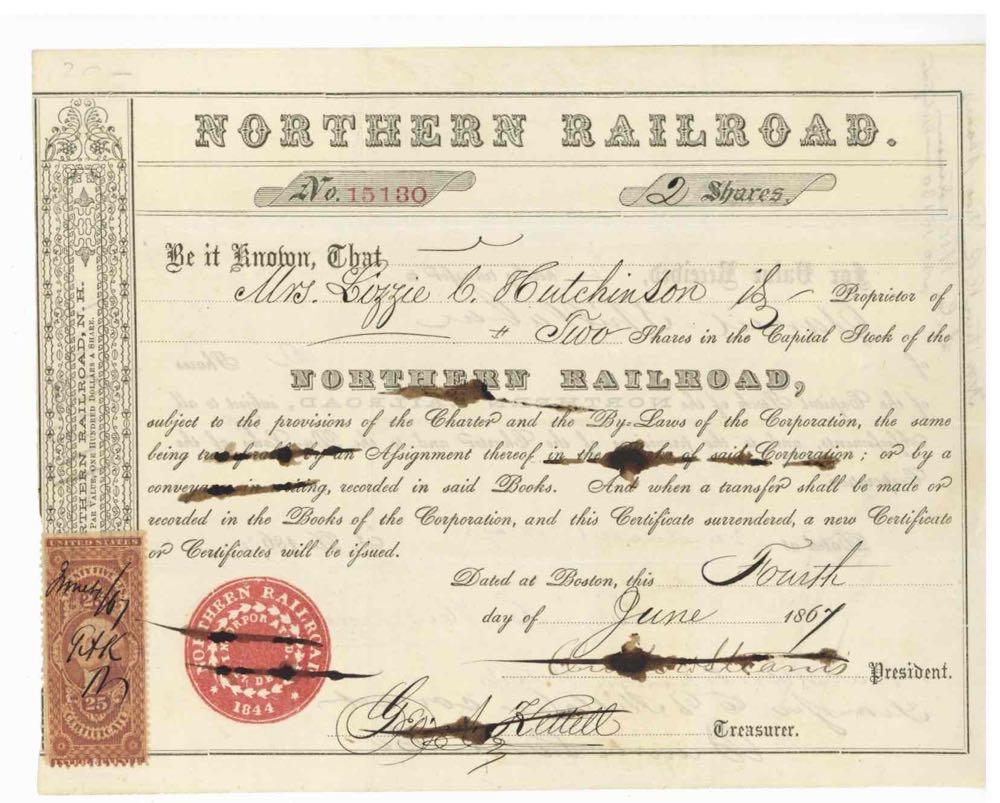 NORTHERN RAILROAD.
No. 15130
2 Shares.
Be it Known, That
Mrs. Lizzie C. Hutchinson is Proprietor of
Two Shares in the Capital Stock of the
NORTHERN RAILROAD,
subject to the provisions of the Charter and the By-Laws of the Corporation, the same
being by an Assignment thereof in the of said Corporation; or by a
recorded in said Books. And when a transfer shall be made or
recorded in the Books of the Corporation, and this Certificate surrendered, a new Certificate
or Certificates will be issued.
Dated at Boston, this Fourth
day of June 1867
Stearns President.
Geo. A. Kettell Treasurer.
NORTHERN RAILROAD, N. H.
PAR VALUE, ONE HUNDRED DOLLARS A SHARE.
UNITED STATES
June 4/67
GAK
25
CERTIFICATE
NORTHERN RAILROAD
1844